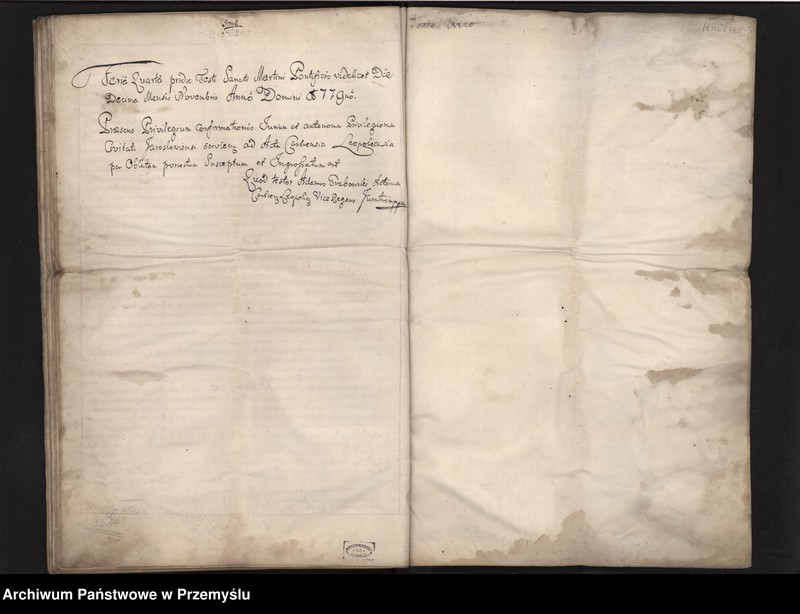 Feria Quarta pridie Festi Sancti Martini Pontificis videlicet Die
Decima Mensis Novembris Anno Domini 1779no.
Præsens Privilegium Confirmationis Jurium et anteriorum Privilegiorum
Civitati Jaroslaviensi serviens ad Acta Castrensia Leopoliensia
per Oblatam porrectum Susceptum et Ingrossatum est
Quod testor Adamus Grabowski Actorum
Castren: Leopolien: Vice Regens Juratus mppa
Archiwum Państwowe w Przemyślu